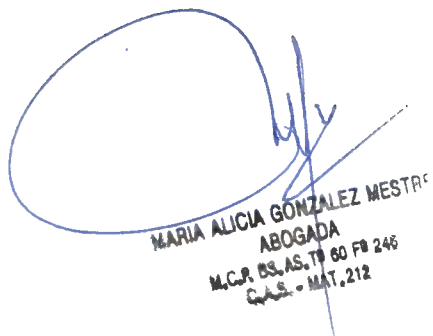 MARIA ALICIA GONZALEZ MESTRE
ABOGADA
M.C.P. BS. AS. Tº 60 Fº 246
C.A.S. - MAT. 212